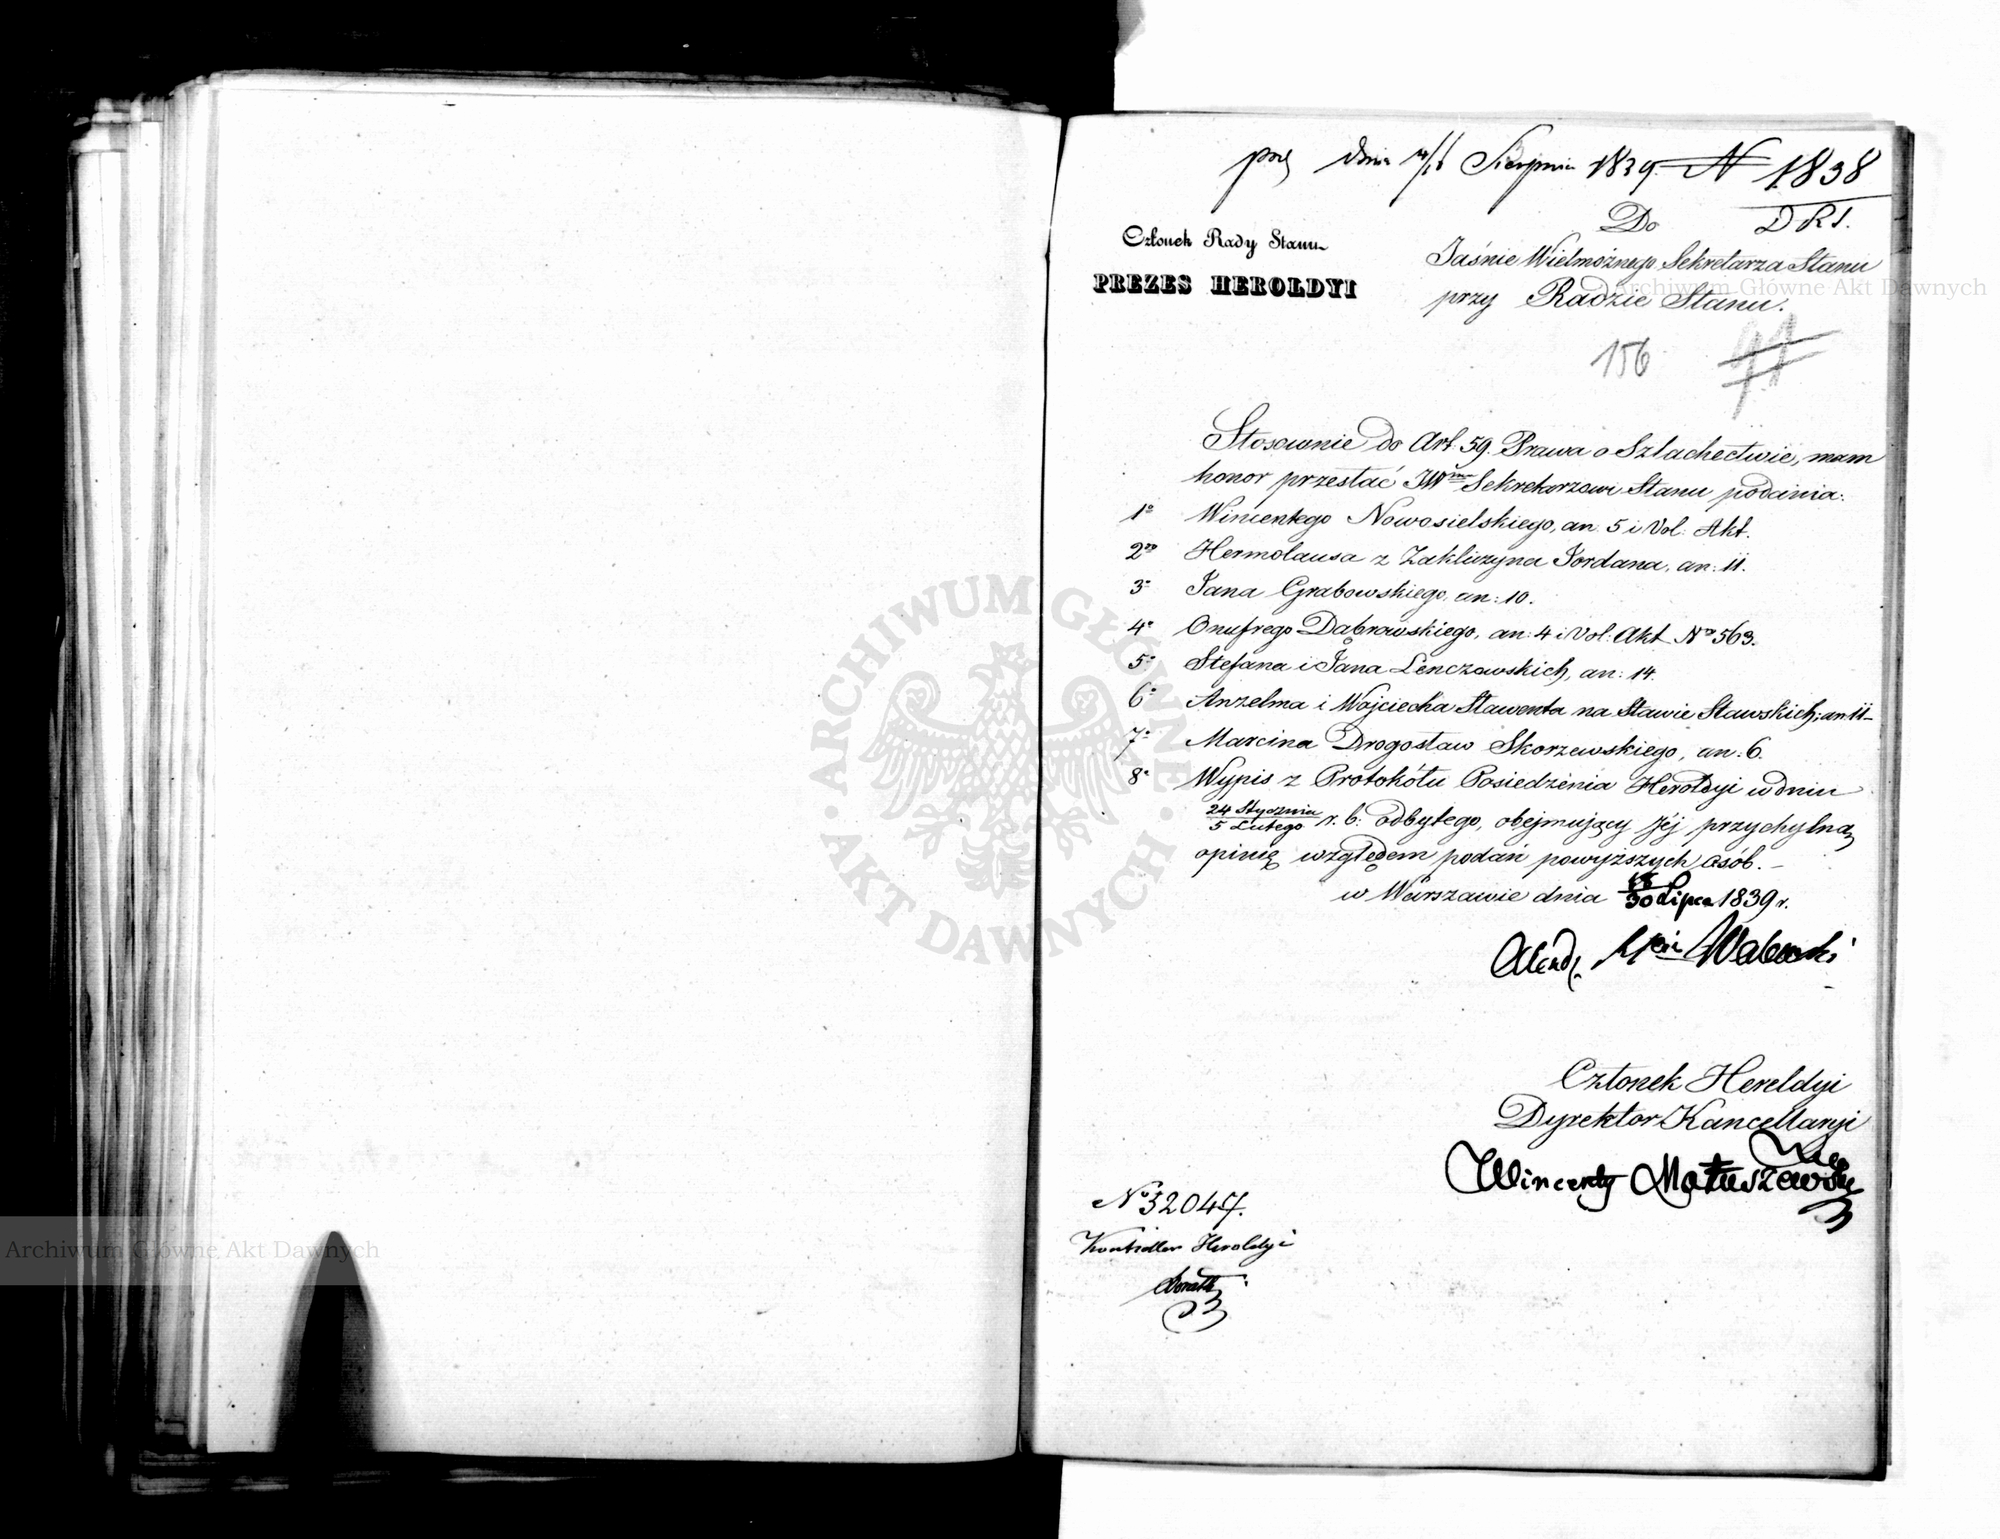 dnia Sierpnia 1839. N 1838
Do DRS.
Członek Rady Stanu
PREZES HEROLDYI
Jaśnie Wielmożnego Sekretarza Stanu
przy Radzie Stanu.
156
Stosownie do Art. 59. Prawa o Szlachectwie, mam
honor przesłać JWmu Sekretarzowi Stanu podania:
1o Wincentego Nowosielskiego, an. 5 i Vol: Akt.
2do Hermolausa z Zakliczyna Jordana, an: 11.
3o Jana Grabowskiego, an: 10.
4o Onufrego Dąbrowskiego, an: 4 i Vol: Akt No 563.
5o Stefana i Jana Lenczowskich, an: 14.
6o Anzelma i Wojciecha Stawenta na Stawie Stawskich; an: 11
7o Marcina Drogosław Skorzewskiego, an: 6.
8o Wypis z Protokółu Posiedzenia Heroldyi w dniu
24 Stycznia/5 Lutego r. b: odbytego, obejmujący Jéj przychylną
opinię względem podań powyższych osób. –
w Warszawie dnia 18/30 Lipca 1839 r.
Walewski
Członek Heroldyi
Dyrektor Kancellaryi
Wincenty Matuszewski
No 32047.
Kontroller Heroldyi
ARCHIWUM GŁÓWNE AKT DAWNYCH
Archiwum Główne Akt Dawnych
Archiwum Główne Akt Dawnych